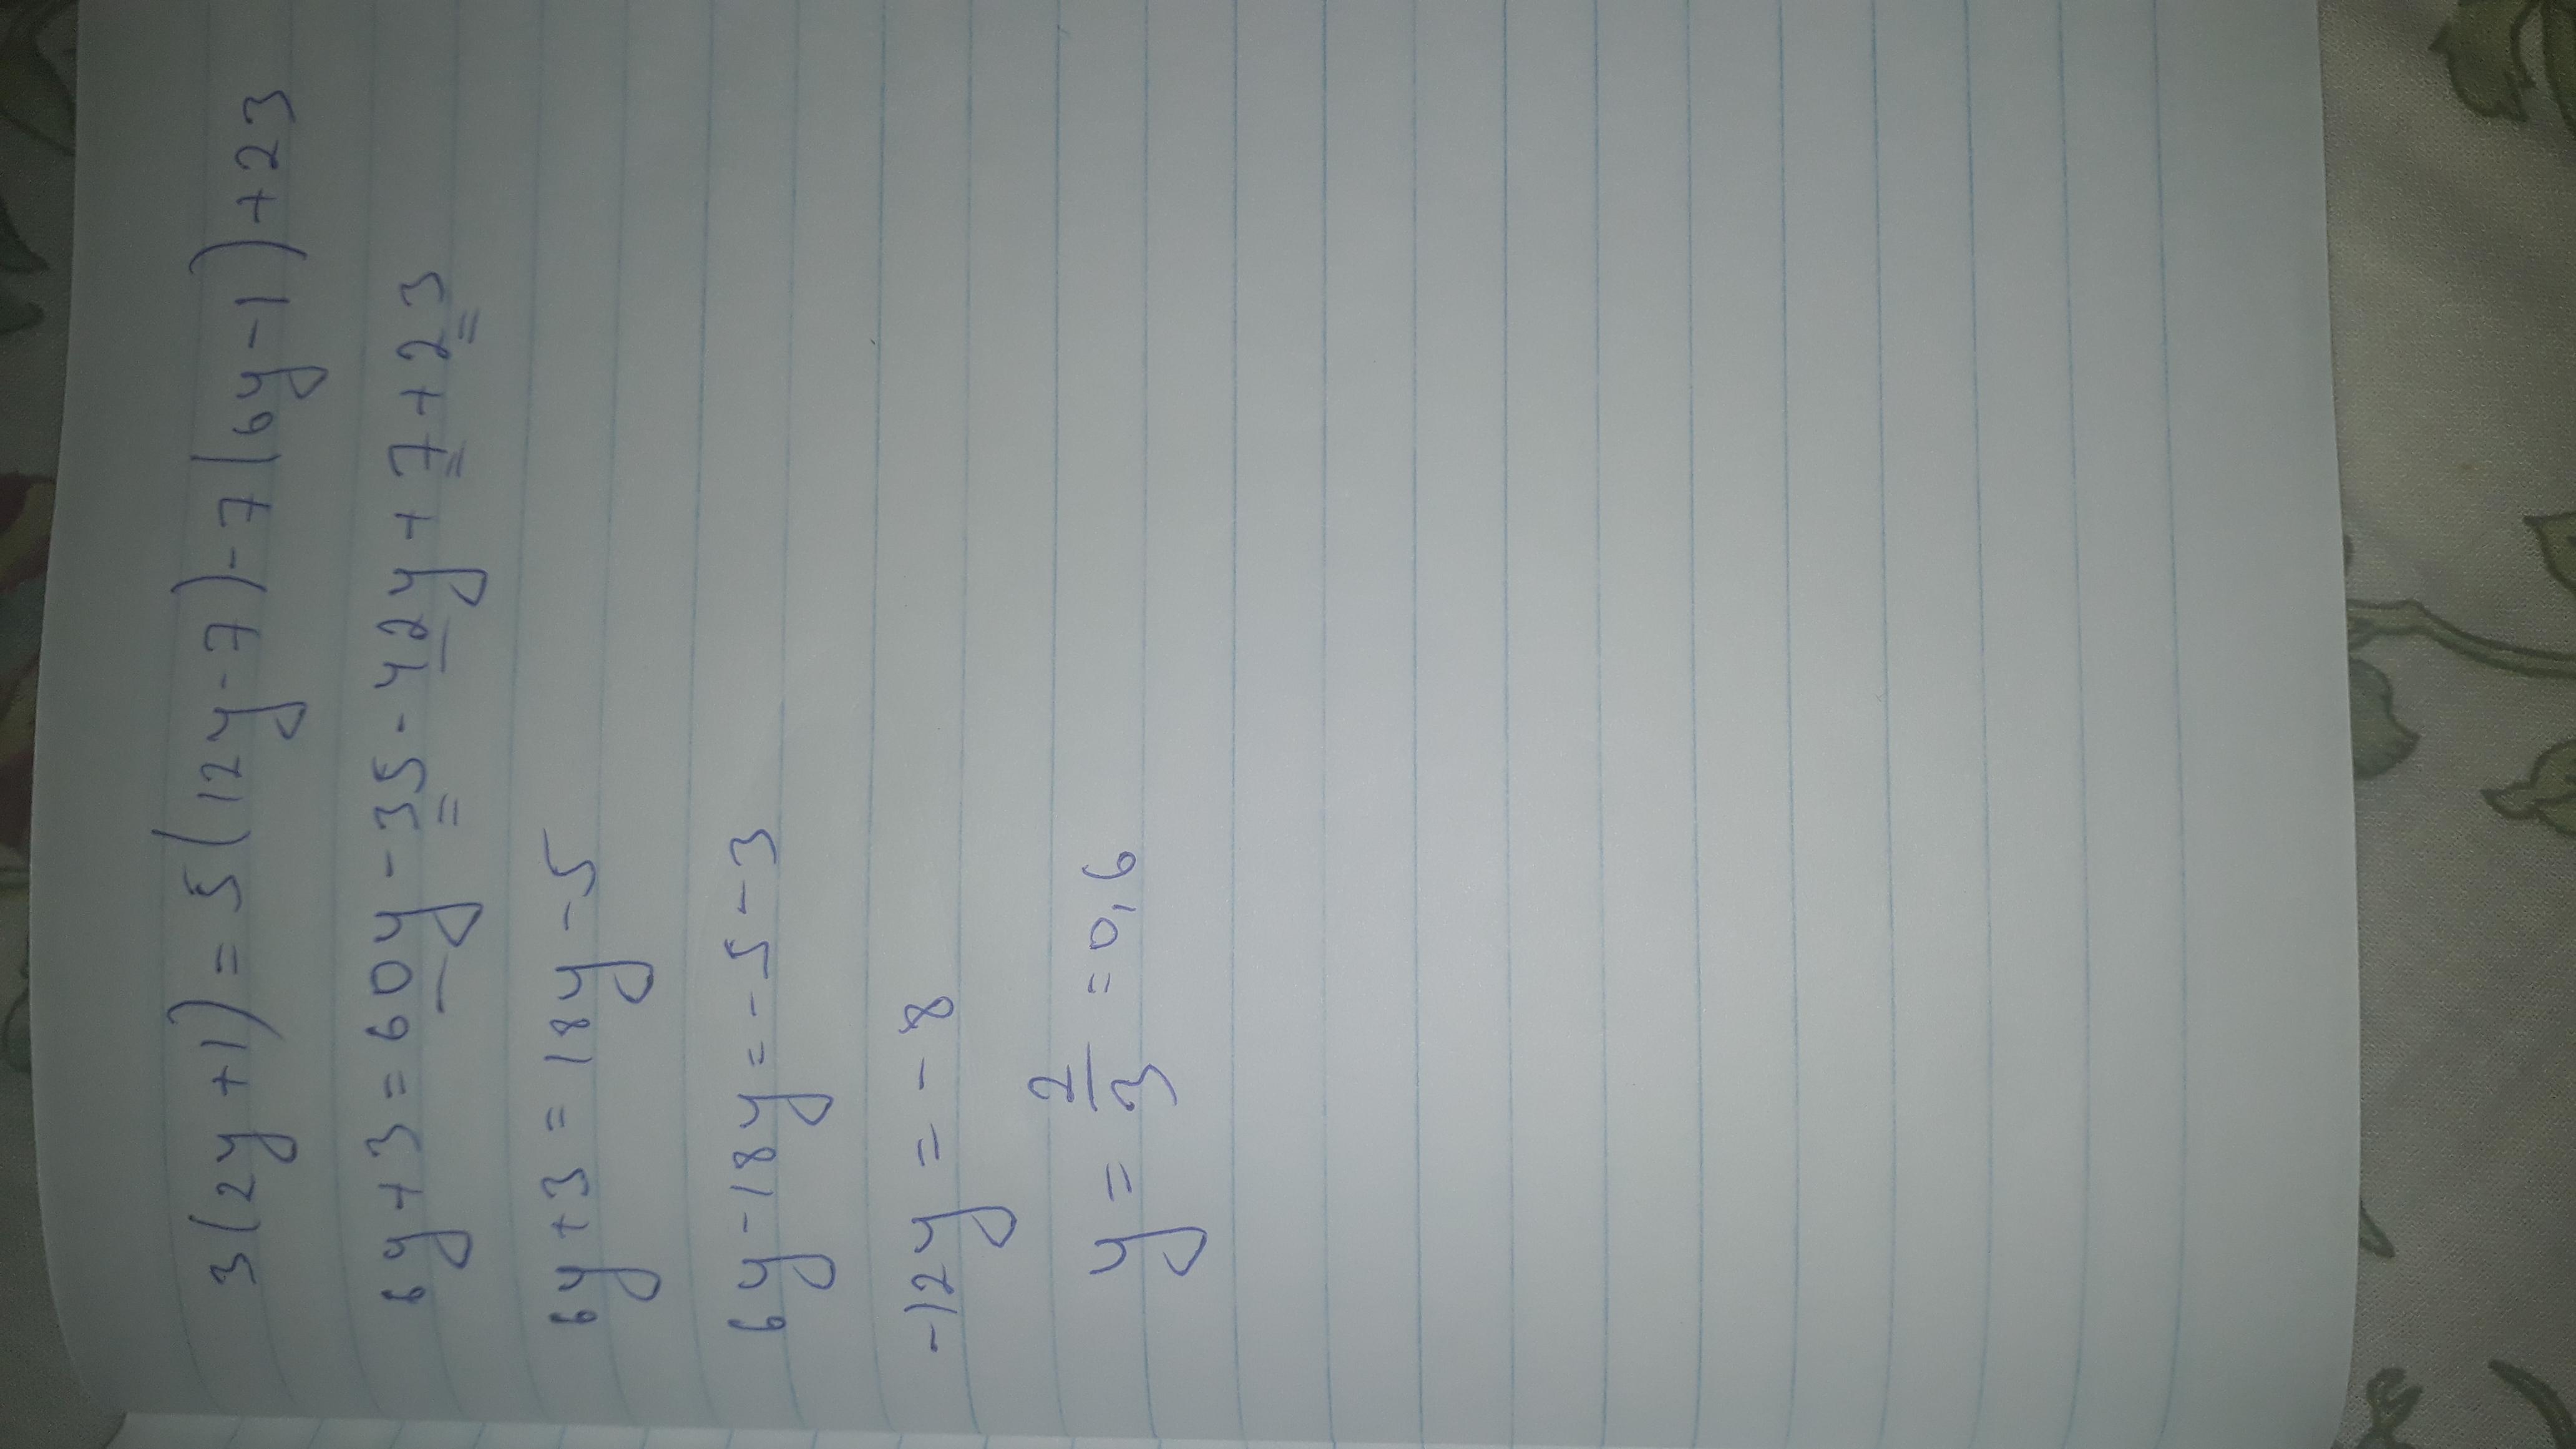 3(2y+1)=5(12y-7)-7(6y-1)+23
6y+3=60y-35-42y+7+23
6y+3=18y-5
6y-18y=-5-3
-12y=-8
y=2/3=0,6